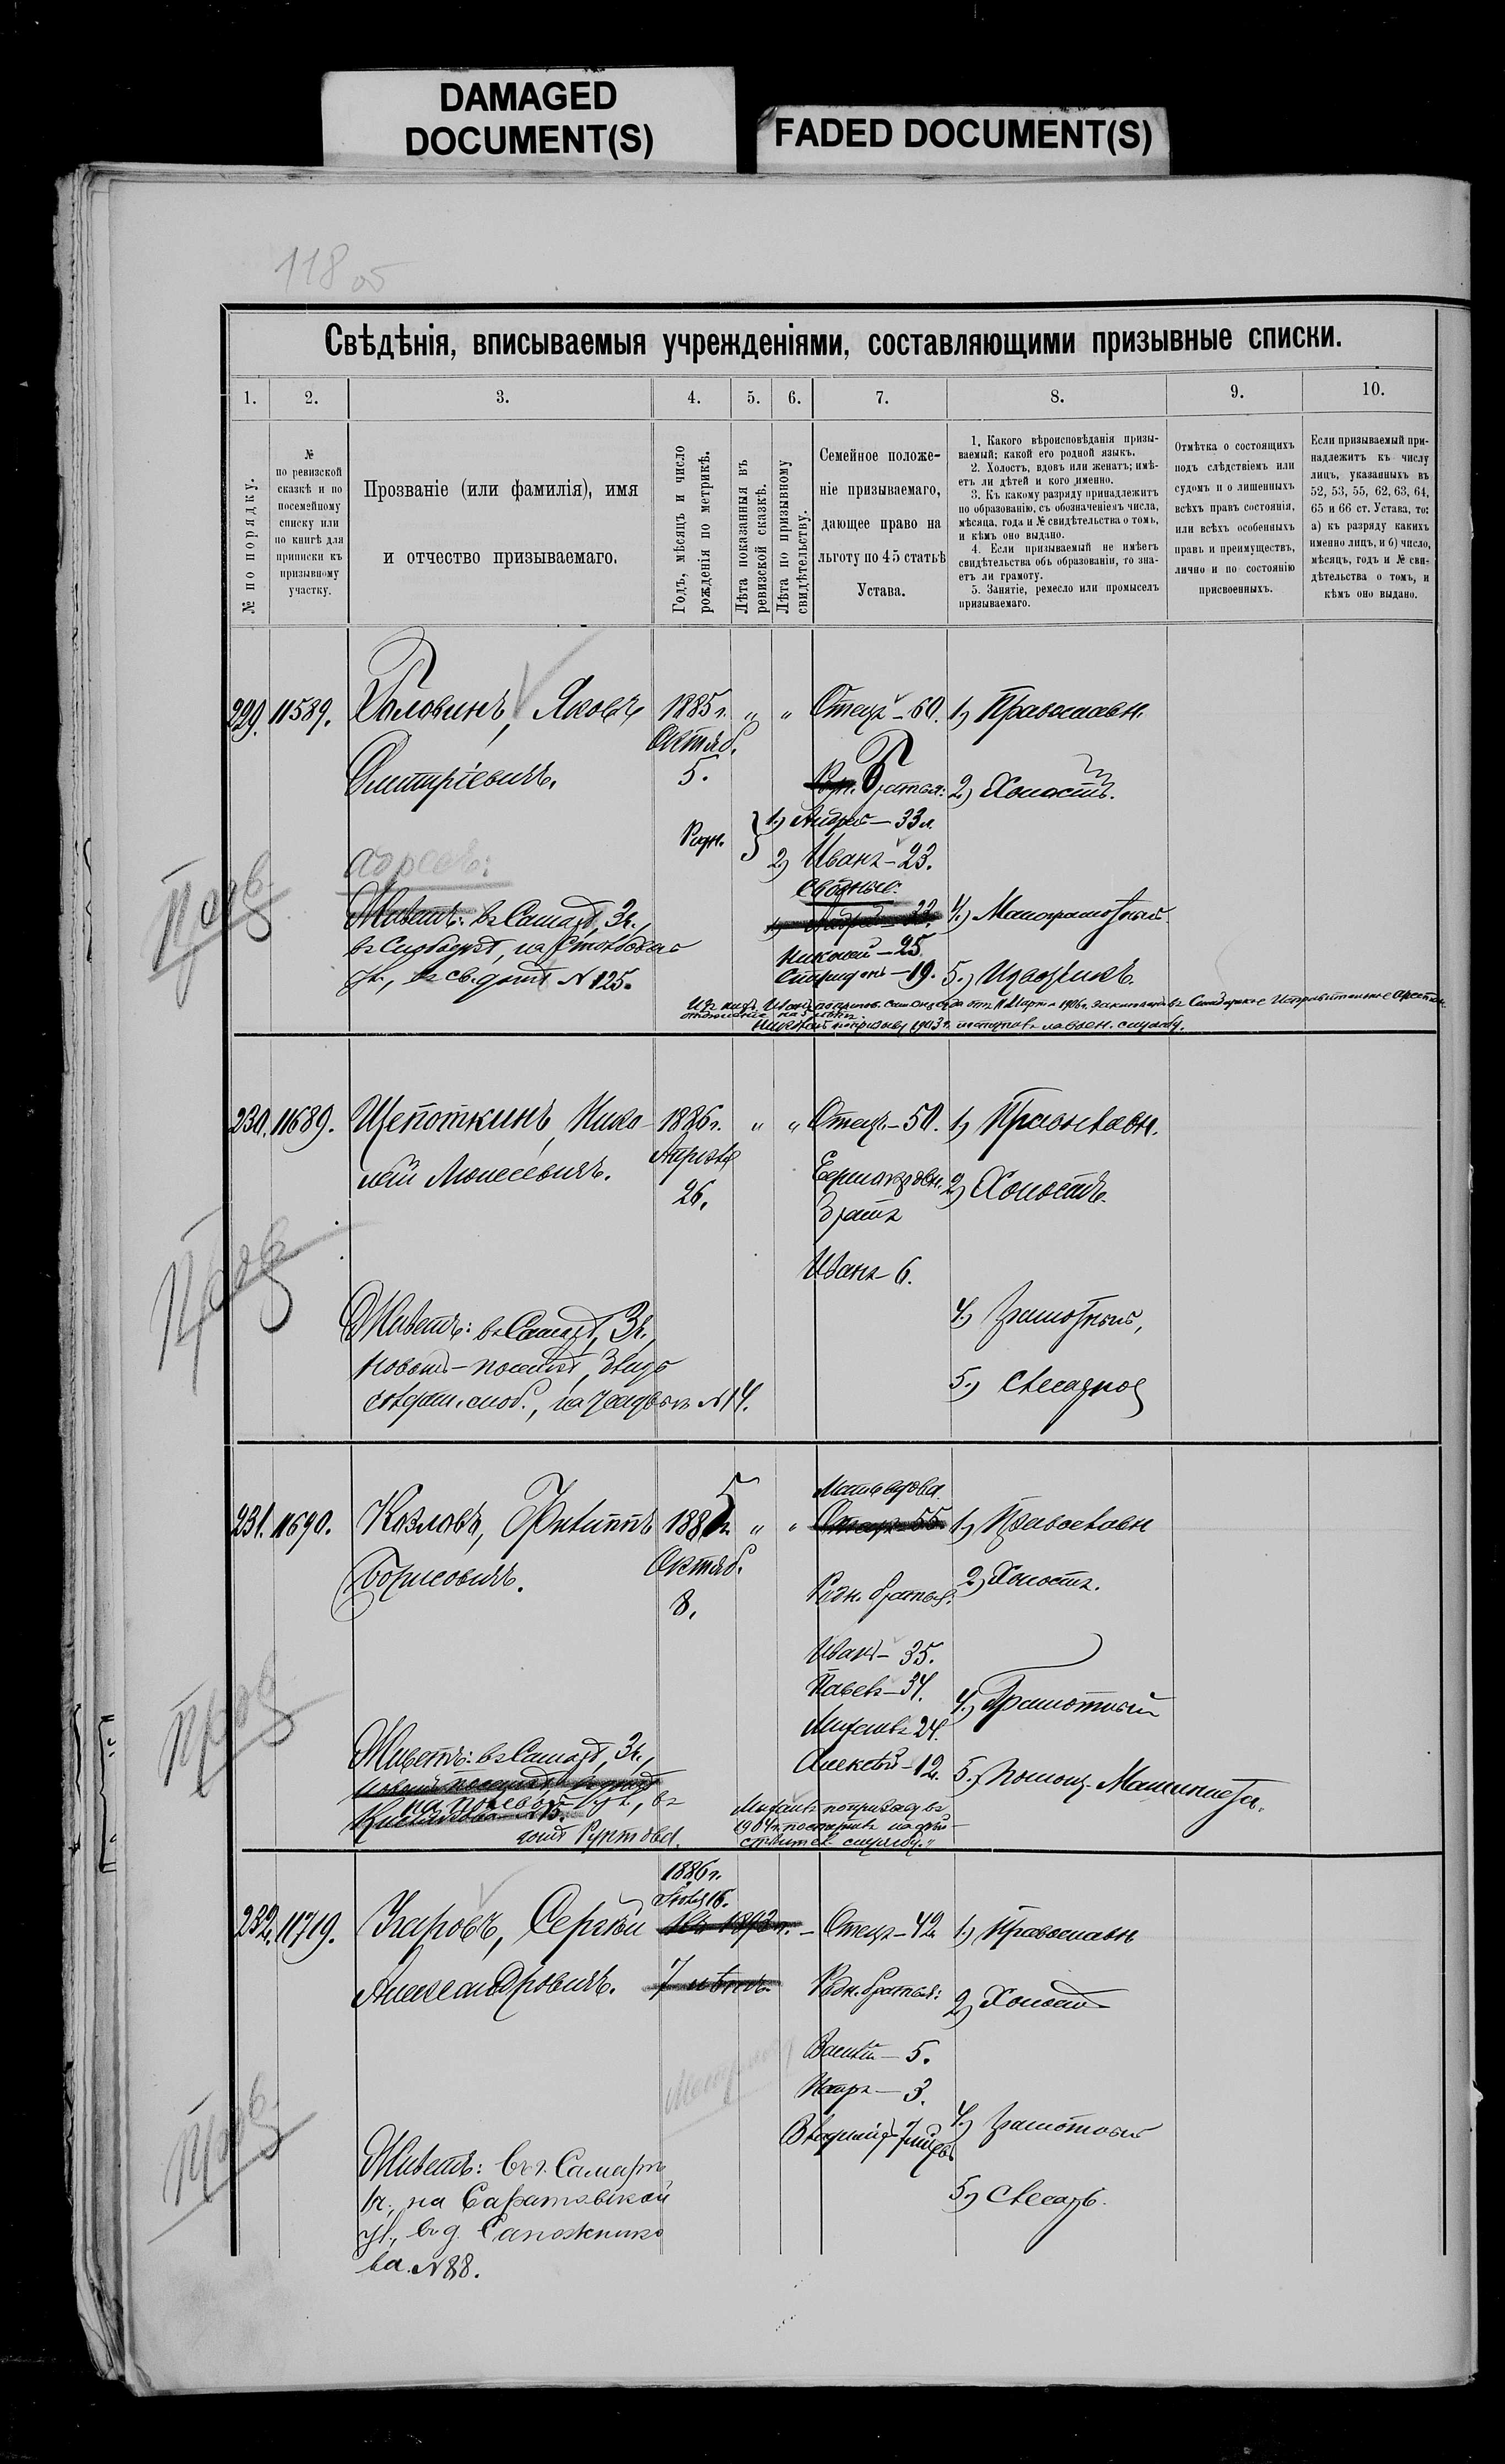 DAMAGED
DOCUMENT(S)
FADED DOCUMENT(S)
118 об
Свѣдѣнія, вписываемыя учрежденіями, составляющими призывные списки.
1. 2. 3. 4. 5. 6. 7. 8. 9. 10.
№ по порядку.
№
по ревизской
сказкѣ и по
посемейному
списку или
по книгѣ для
приписки къ
призывному
участку.
Прозваніе (или фамилія), имя
и отчество призываемаго.
Годъ, мѣсяцъ и число
рожденія по метрикѣ.
Лѣта показанныя въ
ревизской сказкѣ.
Лѣта по призывному
свидѣтельству.
Семейное положе-
ніе призываемаго,
дающее право на
льготу по 45 статьѣ
Устава.
1. Какого вѣроисповѣданія призы-
ваемый; какой его родной языкъ.
2. Холостъ, вдовъ или женатъ; имѣ-
етъ ли дѣтей и кого именно.
3. Къ какому разряду принадлежитъ
по образованію, съ обозначеніемъ числа,
мѣсяца, года и № свидѣтельства о томъ,
и кѣмъ оно выдано.
4. Если призываемый не имѣетъ
свидѣтельства объ образованіи, то зна-
етъ ли грамоту.
5. Занятіе, ремесло или промыселъ
призываемаго.
Отмѣтка о состоящихъ
подъ слѣдствіемъ или
судомъ и о лишенныхъ
всѣхъ правъ состоянія,
или всѣхъ особенныхъ
правъ и преимуществъ,
лично и по состоянію
присвоенныхъ.
Если призываемый при-
надлежитъ къ числу
лицъ, указанныхъ въ
52, 53, 55, 62, 63, 64,
65 и 66 ст. Устава, то:
а) къ разряду какихъ
именно лицъ, и б) число,
мѣсяцъ, годъ и № сви-
дѣтельства о томъ, и
кѣмъ оно выдано.
229. 11589. Головинъ, Яковъ 1885 г. „ „ Отецъ - 60. 1) Православн.
Дмитріевичъ.
Октяб.
5.
Братья: 2) Холостъ.
Родн. 1) Андрей - 33 л.
2) Иванъ - 23.
Сводные:
Николай - 25
Спиридонъ - 19.
4.) Малограмотный.
5.) Извозчикъ.
адресъ:
Живетъ: въ Самарѣ, 3 ч.,
ул., въ св. домѣ № 125.
Николай по призыву 1903 г. поступилъ на воен. службу.
230. 11689. Щепоткинъ, Нико- 1886 г. „ „ Отецъ - 50. 1) Православн.
лай Моисеевичъ.
Апрѣля
26.
Братъ
Иванъ - 6.
2) Холостъ.
4.) Грамотный,
5.) Слесарное
Живетъ: въ Самарѣ, 3 ч.,
№ 14.
231. 11690. Козловъ, Филиппъ 1885 г. „ „ Отецъ - 55 1) Православн
Борисовичъ.
Октяб.
8.
Родн. братья:
Иванъ - 35.
Павелъ - 34.
Михаилъ 24.
Алексѣй - 12.
2) Холостъ.
4.) Грамотный
5.) Помощ. Машиниста.
Живетъ: въ Самарѣ, 3 ч.,
Михаилъ по призыву въ
1904 г. поступилъ на дѣй-
ствител. службу.
232. 11719. Захаровъ, Сергѣй 1886 г. Отецъ - 42. 1.) Православн
Александровичъ. 7 лѣтъ. Родн. братья: 2) Холостъ
Василій - 5.
Петръ - 3.
4.) Грамотный
5.) Слесарь.
Живетъ: въ г. Самарѣ
1 ч., на Саратовской
ул., въ д. Сапожнико
ва № 88.